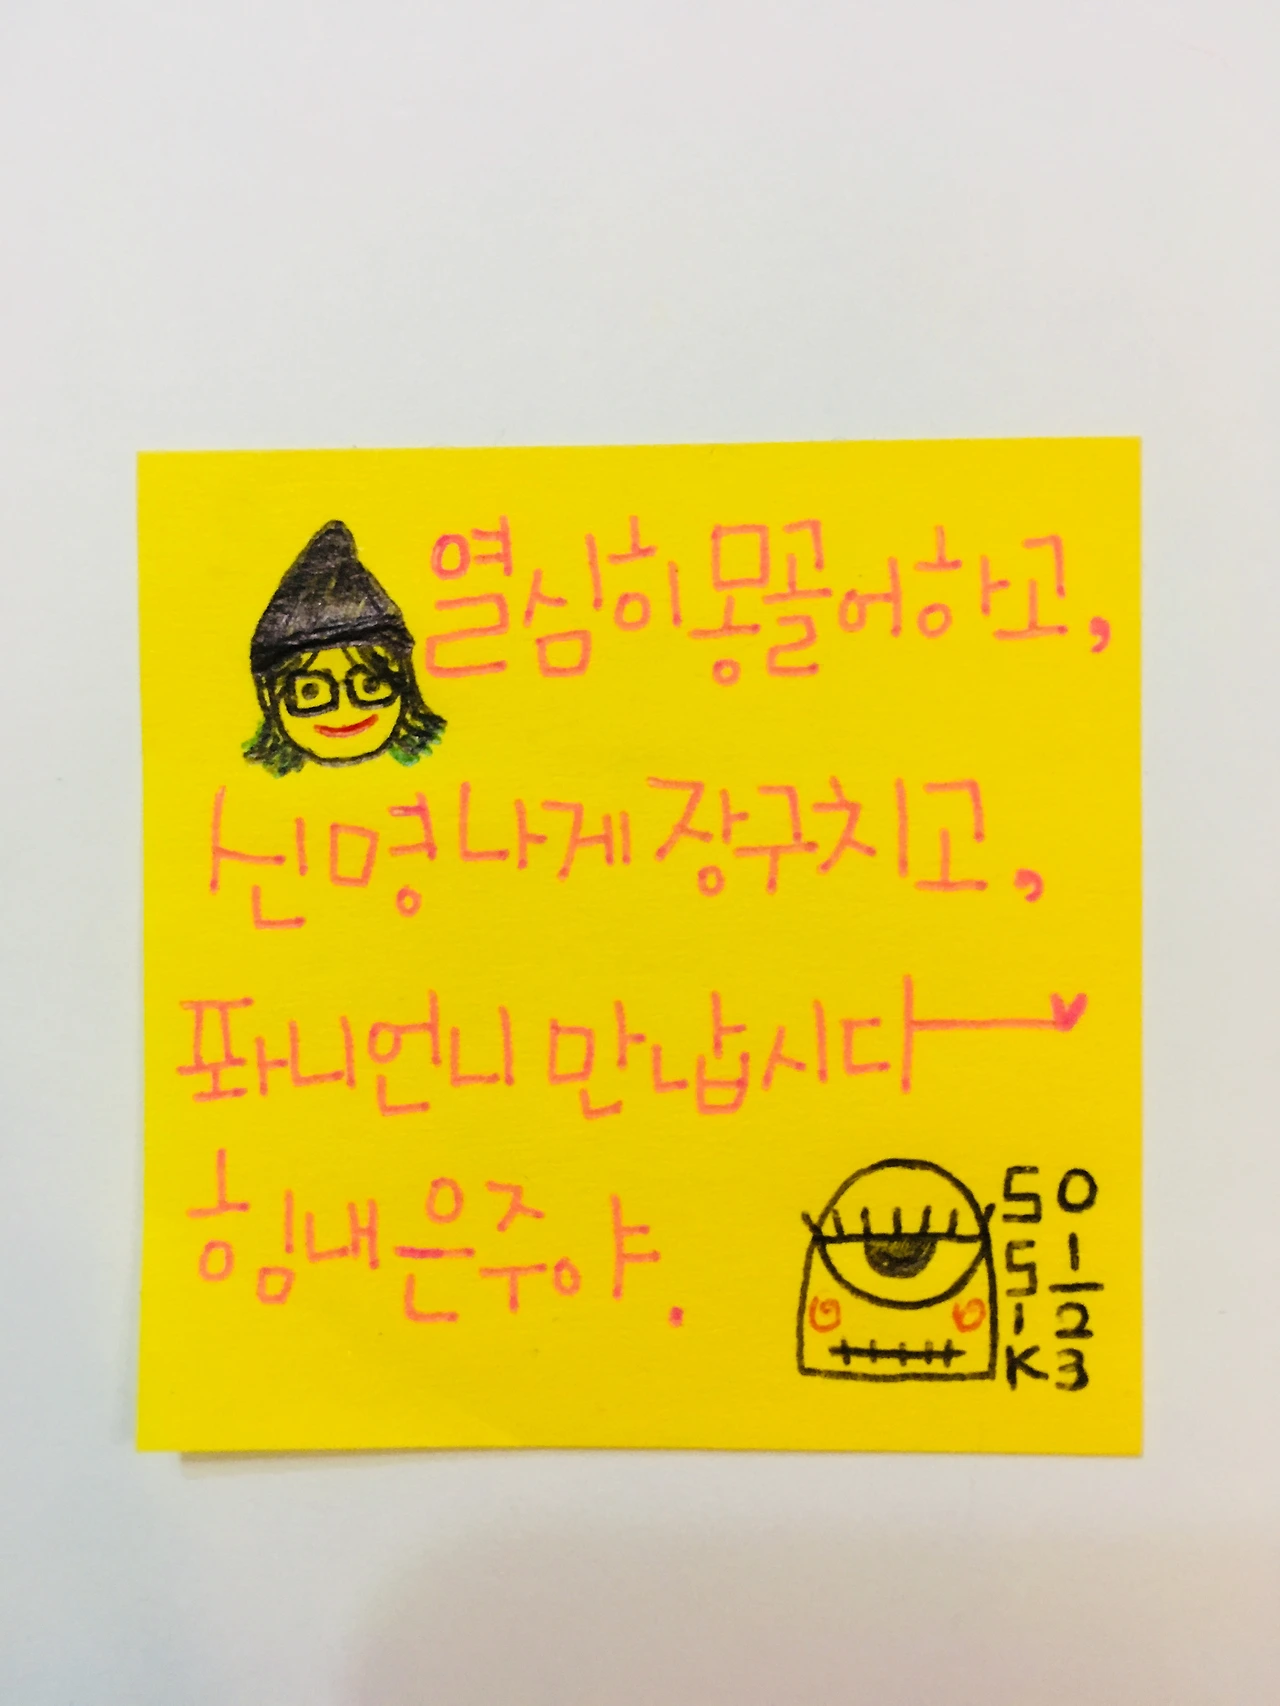 열심히 몽골어하고,
신명나게 장구치고,
퐈니언니 만납시다
힘내 은주야.
SO
S 1
i 2
K 3